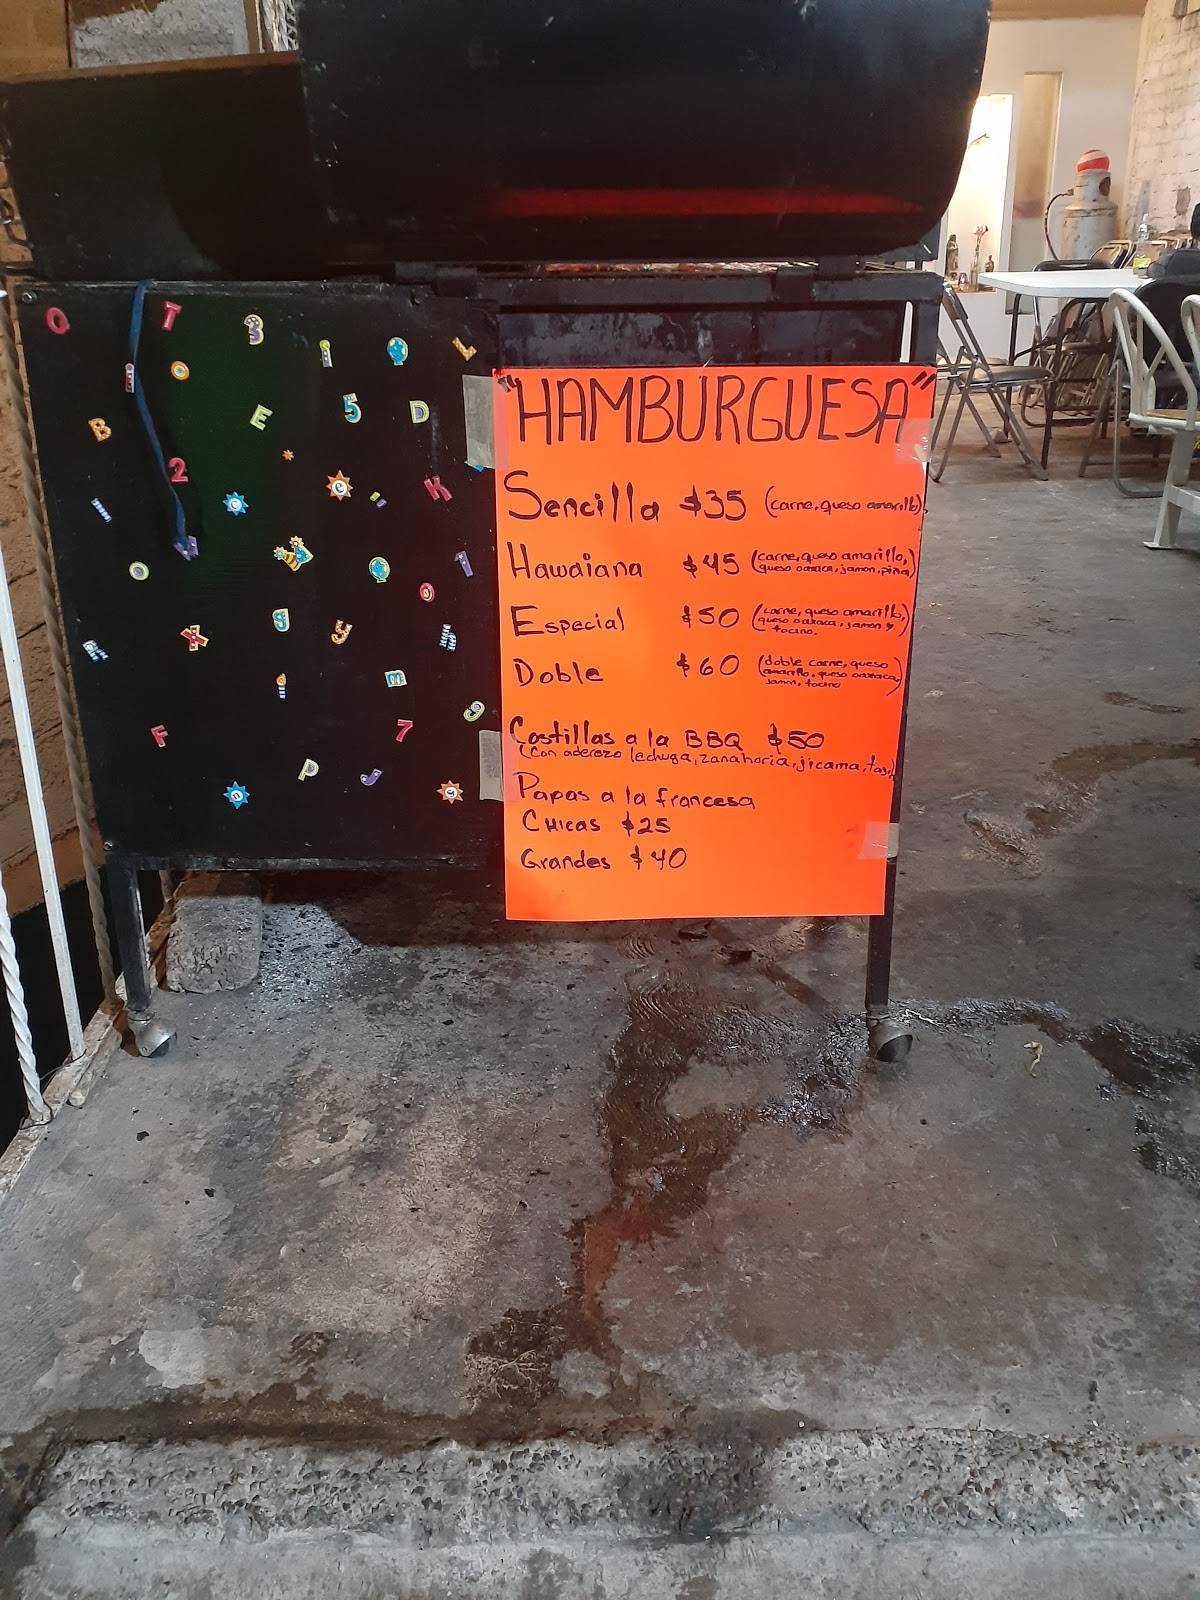 "HAMBURGUESA"
Sencilla $35 (carne, queso amarillo)
Hawaiana $45 (carne, queso amarillo,
queso oaxaca, jamon, piña)
Especial $50 (carne, queso amarillo,
queso oaxaca, jamon y
tocino.
Doble $60 (doble carne, queso
amarillo, queso oaxaca,
jamon, tocino
Costillas a la BBQ $50
(Con aderezo lechuga, zanahoria, jicama,
Papas a la francesa
CHicas $25
Grandes $40